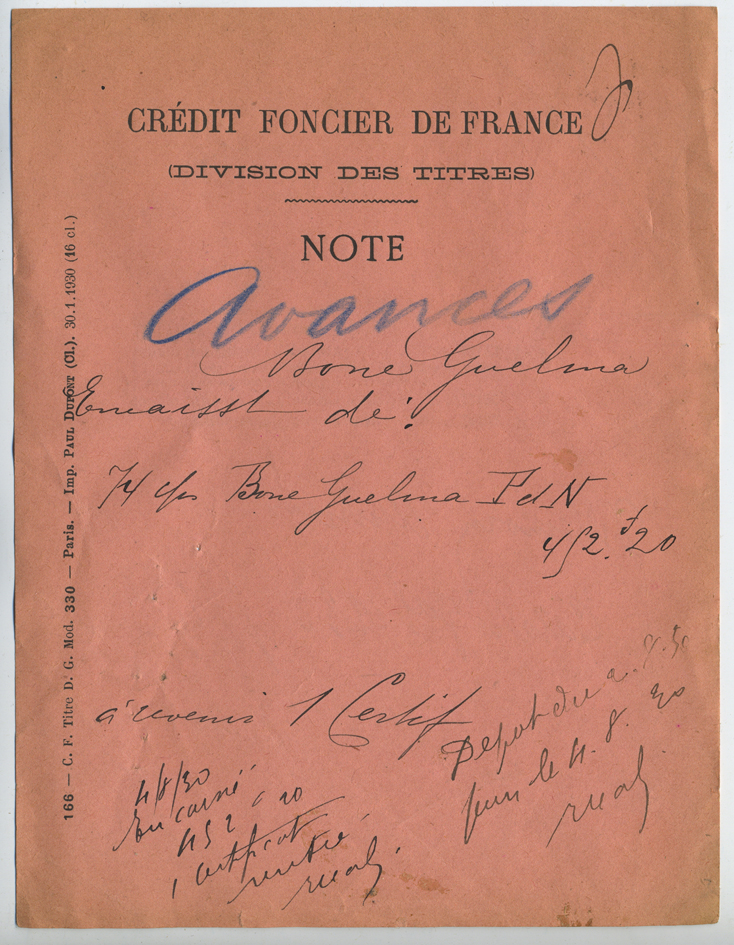 CRÉDIT FONCIER DE FRANCE
(DIVISION DES TITRES)
NOTE
Avances
Bone Guelma
Encaisst de:
74 c/ps Bone Guelma P d N
452.f 20
à revenir 1 Certif
Depot du
pour le 4.8.30
4/8/30
Encaissé
452 20
1 certificat
rentré
166 — C. F. Titre D. G. Mod. 330 — Paris. — Imp. PAUL DUPONT (Cl.). 30.1.1930 (16 cl.)